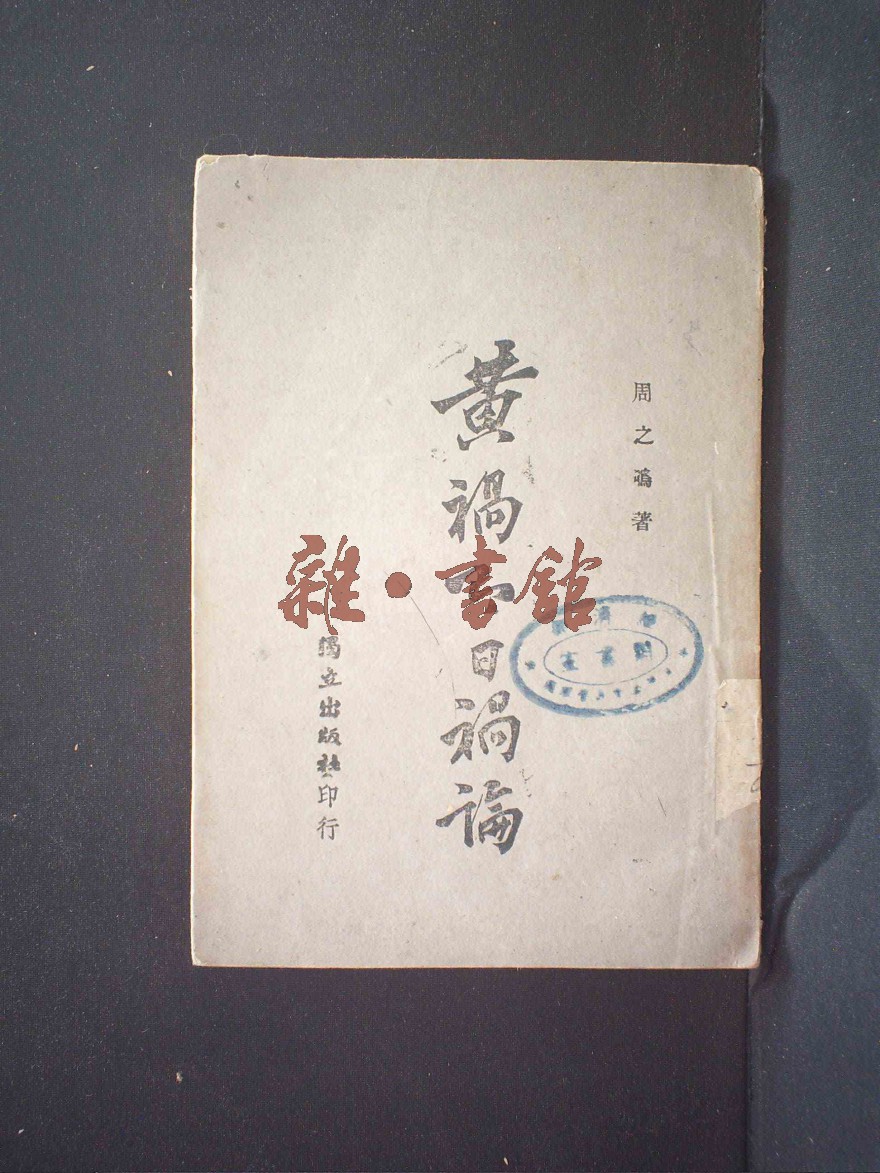 周之鳴著
黃禍與日禍論
獨立出版社印行
雜·書館